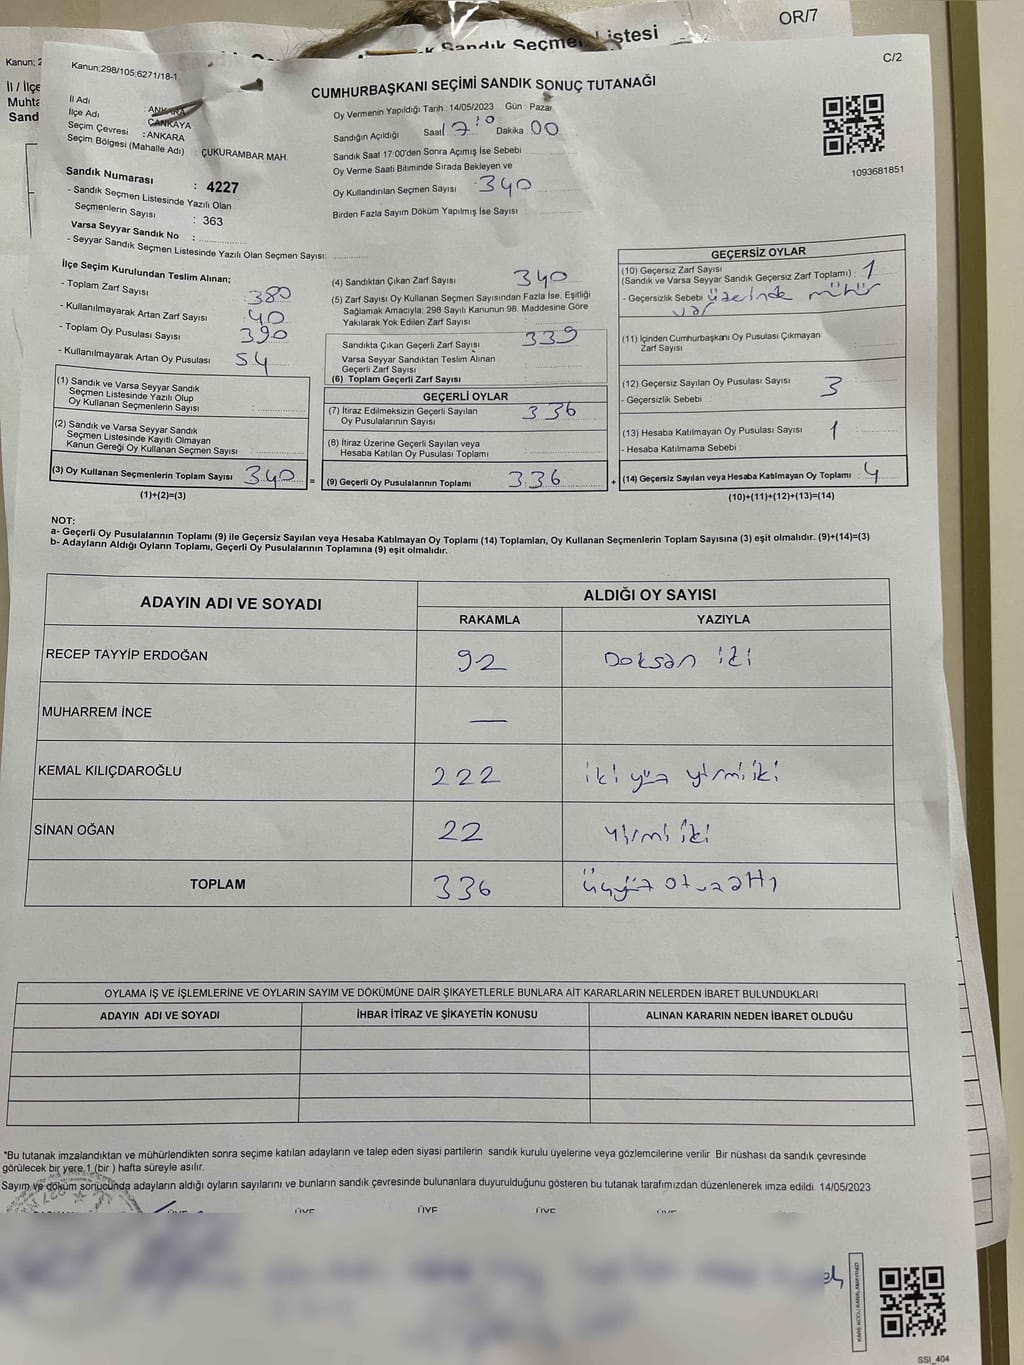 OR/7
Sandık Seçmen Listesi
Kanun; 2
İl / İlçe
Muhta
Sand
C/2
Kanun;298/105;6271/18-1
CUMHURBAŞKANI SEÇİMİ SANDIK SONUÇ TUTANAĞI
İl Adı : ANKARA
İlçe Adı : ÇANKAYA
Seçim Çevresi : ANKARA
Seçim Bölgesi (Mahalle Adı) : ÇUKURAMBAR MAH.
Sandık Numarası : 4227
- Sandık Seçmen Listesinde Yazılı Olan
Seçmenlerin Sayısı : 363
Varsa Seyyar Sandık No :
- Seyyar Sandık Seçmen Listesinde Yazılı Olan Seçmen Sayısı:
Oy Vermenin Yapıldığı Tarih : 14/05/2023 Gün : Pazar
Sandığın Açıldığı Saat 17:00 Dakika : 00
Sandık Saat 17:00'den Sonra Açımış İse Sebebi
Oy Verme Saati Bitiminde Sırada Bekleyen ve
Oy Kullandırılan Seçmen Sayısı : 340
Birden Fazla Sayım Döküm Yapılmış İse Sayısı :
1093681851
İlçe Seçim Kurulundan Teslim Alınan;
- Toplam Zarf Sayısı : 380
- Kullanılmayarak Artan Zarf Sayısı : 40
- Toplam Oy Pusulası Sayısı : 390
- Kullanılmayarak Artan Oy Pusulası : 54
(1) Sandık ve Varsa Seyyar Sandık
Seçmen Listesinde Yazılı Olup
Oy Kullanan Seçmenlerin Sayısı :
(2) Sandık ve Varsa Seyyar Sandık
Seçmen Listesinde Kayıtlı Olmayan
Kanun Gereği Oy Kullanan Seçmen Sayısı :
(3) Oy Kullanan Seçmenlerin Toplam Sayısı : 340 =
(1)+(2)=(3)
(4) Sandıktan Çıkan Zarf Sayısı 340
(5) Zarf Sayısı Oy Kullanan Seçmen Sayısından Fazla İse, Eşitliği
Sağlamak Amacıyla; 298 Sayılı Kanunun 98. Maddesine Göre
Yakılarak Yok Edilen Zarf Sayısı :
Sandıkta Çıkan Geçerli Zarf Sayısı : 339
Varsa Seyyar Sandıktan Teslim Alınan
Geçerli Zarf Sayısı :
(6) Toplam Geçerli Zarf Sayısı :
GEÇERLİ OYLAR
(7) İtiraz Edilmeksizin Geçerli Sayılan
Oy Pusulasının Sayısı : 336
(8) İtiraz Üzerine Geçerli Sayılan veya
Hesaba Katılan Oy Pusulası Toplamı :
(9) Geçerli Oy Pusulalarının Toplamı : 336 +
GEÇERSİZ OYLAR
(10) Geçersiz Zarf Sayısı
(Sandık ve Varsa Seyyar Sandık Geçersiz Zarf Toplamı) : 1
- Geçersizlik Sebebi : üzerinde mühür
var
(11) İçinden Cumhurbaşkanı Oy Pusulası Çıkmayan
Zarf Sayısı
(12) Geçersiz Sayılan Oy Pusulası Sayısı : 3
- Geçersizlik Sebebi :
(13) Hesaba Katılmayan Oy Pusulası Sayısı : 1
- Hesaba Katılmama Sebebi :
(14) Geçersiz Sayılan veya Hesaba Katılmayan Oy Toplamı : 4
(10)+(11)+(12)+(13)=(14)
NOT:
a- Geçerli Oy Pusulalarının Toplamı (9) ile Geçersiz Sayılan veya Hesaba Katılmayan Oy Toplamı (14) Toplamları, Oy Kullanan Seçmenlerin Toplam Sayısına (3) eşit olmalıdır. (9)+(14)=(3)
b- Adayların Aldığı Oyların Toplamı, Geçerli Oy Pusulalarının Toplamına (9) eşit olmalıdır.
ADAYIN ADI VE SOYADI ALDIĞI OY SAYISI
RAKAMLA YAZIYLA
RECEP TAYYİP ERDOĞAN 92 Doksan iki
MUHARREM İNCE —
KEMAL KILIÇDAROĞLU 222 iki yüz yirmi iki
SİNAN OĞAN 22 yirmi iki
TOPLAM 336 üçyüz otuzaltı
OYLAMA İŞ VE İŞLEMLERİNE VE OYLARIN SAYIM VE DÖKÜMÜNE DAİR ŞİKAYETLERLE BUNLARA AİT KARARLARIN NELERDEN İBARET BULUNDUKLARI
ADAYIN ADI VE SOYADI İHBAR İTİRAZ VE ŞİKAYETİN KONUSU ALINAN KARARIN NEDEN İBARET OLDUĞU
*Bu tutanak imzalandıktan ve mühürlendikten sonra seçime katılan adayların ve talep eden siyasi partilerin sandık kurulu üyelerine veya gözlemcilerine verilir. Bir nüshası da sandık çevresinde
görülecek bir yere 1 (bir ) hafta süreyle asılır.
Sayım ve döküm sonucunda adayların aldığı oyların sayılarını ve bunların sandık çevresinde bulunanlara duyurulduğunu gösteren bu tutanak tarafımızdan düzenlenerek imza edildi. 14/05/2023
ÜYE ÜYE ÜYE ÜYE ÜYE
SSI_404